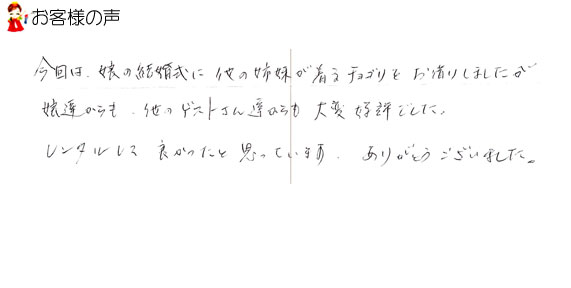 お客様の声
今回は、娘の結婚式に他の姉妹が着るチョゴリをお借りしましたが
娘達からも、他のゲストさん達からも大変好評でした。
レンタルして良かったと思っています。ありがとうございました。